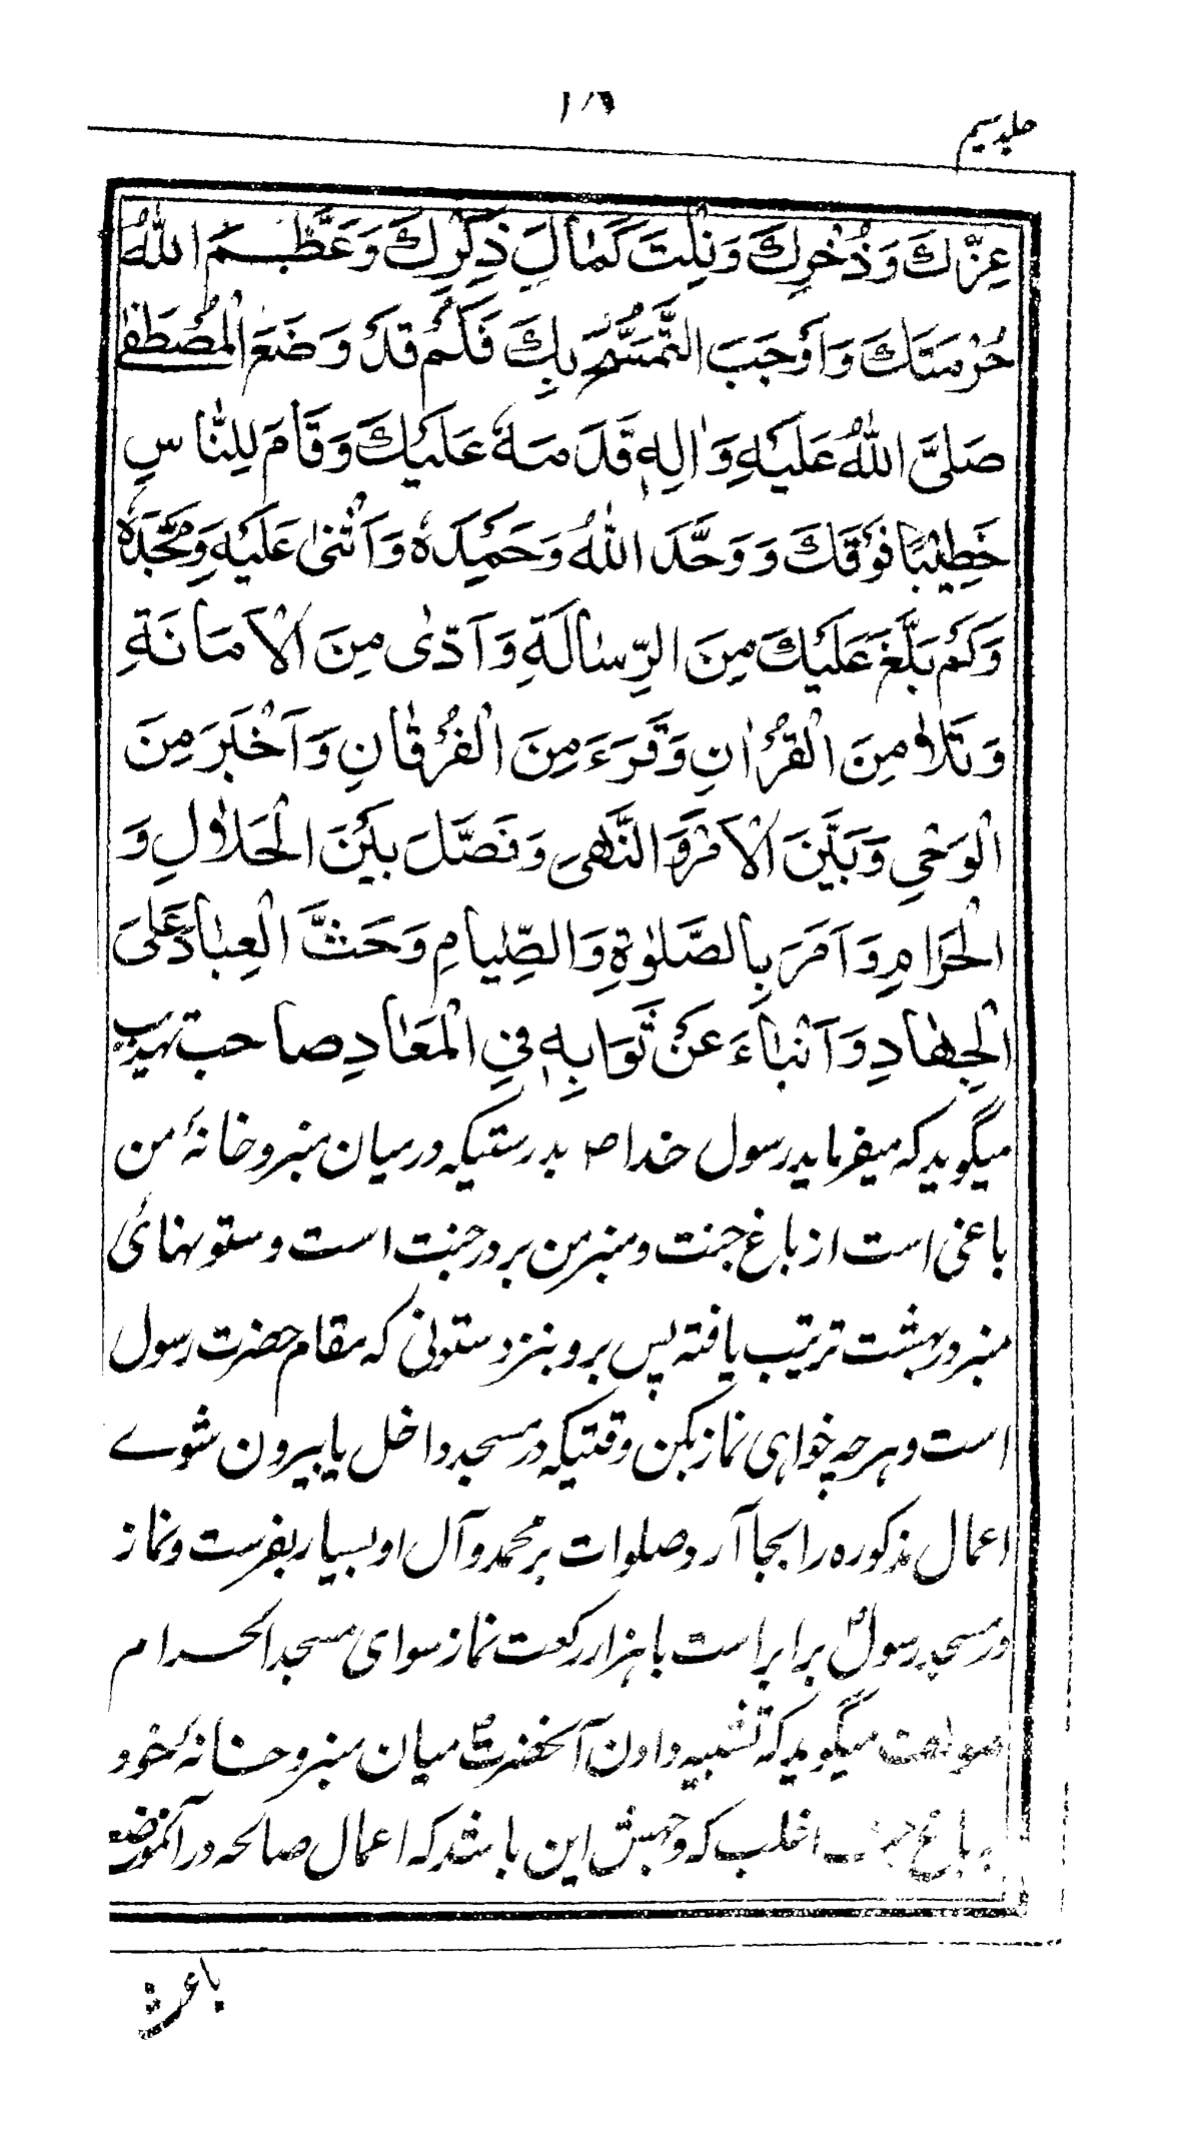 جلد سیم
عِزِّكَ وَذُخْرِكَ وَنِلْتَ كَمٰالَ ذِكْرِكَ وَعَظَّمَ اللّٰهُ
حُرْمَتَكَ وَاَوْجَبَ التَّمَسُّحَ بِكَ فَكَمْ قَدْ وَضَعَ الْمُصْطَفٰى
صَلَّى اللّٰهُ عَلَيْهِ وَاٰلِهٖ قَدَمَهٗ عَلَيْكَ وَقَامَ لِلنّٰاسِ
خَطِيْبًا فَوْقَكَ وَ وَحَّدَ اللّٰهُ وَحَمِدَهٗ وَاَثْنٰى عَلَيْهِ وَمَجَّدَهٗ
وَكَمْ بَلَّغَ عَلَيْكَ مِنَ الرِّسٰالَةِ وَاَدّٰى مِنَ الْاَمَانَةِ
وَتَلاٰ مِنَ الْقُرْاٰنِ وَقَرَءَ مِنَ الْفُرْقٰانِ وَاَخْبَرَ مِنَ
الْوَحْيِ وَبَيَّنَ الْاَمْرَ وَالنَّهْىَ وَفَصَّلَ بَيْنَ الْحَلاٰلِ وَ
الْحَرَامِ وَاَمَرَ بِالصَّلٰوةِ وَالصِّيٰامِ وَحَثَّ الْعِبٰادَ عَلَى
الْجِهٰادِ وَاَنْبٰاءَ عَنْ ثَوَابِهٖ فِى الْمَعٰادِ صاحب تهذیب
میگوید که میفرماید رسول خدا ص بدرستیکه درمیان منبر و خانهٔ من
باغی است از باغ جنت و منبر من بر در جنت است و ستونهائ
منبر در بهشت ترتیب یافته پس برو بنزد ستونی که مقام حضرت رسول
است و هر چه خواهی نماز بکن وقتیکه در مسجد داخل یا بیرون شوے
اعمال مذکوره را بجا آر و صلوات بر محمد و آل او بسیار بفرست و نماز
در مسجد رسول ص برابر است با هزار رکعت نماز سوای مسجد الحرام
مولف میگوید که تشبیه دادن آنحضرت ص میان منبر و خانهٔ خود
به باغ جنت اغلب که وجهش این باشد که اعمال صالحه در آنموضع
باعث